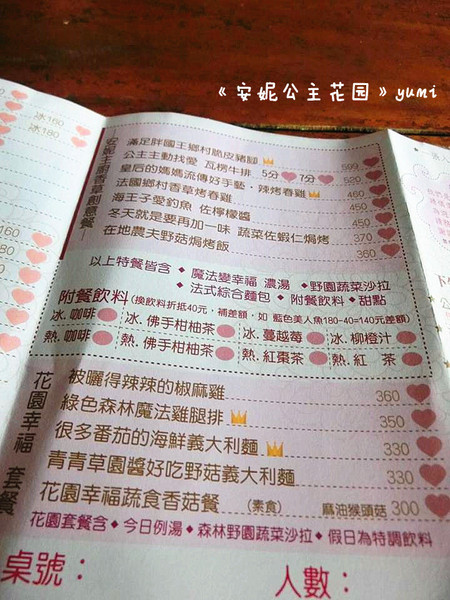 《安妮公主花园》yumi
冰180
冰180
安妮主廚香草創意餐
滿足胖國王鄉村脆皮豬腳 599
公主主動找愛 瓦楞牛排 5分 7分 520
皇后的媽媽流傳好手藝．辣烤春雞 450
法國鄉村香草烤春雞 460
海王子愛釣魚 佐檸檬醬 450
冬天就是要再加一味 蔬菜佐蝦仁焗烤 370
在地農夫野菇焗烤飯 360
以上特餐皆含◆魔法變幸福 濃湯◆野園蔬菜沙拉
◆法式綜合麵包◆附餐飲料◆甜點
附餐飲料(換飲料折抵40元，補差額，如 藍色美人魚180-40=140元差額)
冰.咖啡 冰.佛手柑柚茶 冰.蔓越莓 冰.柳橙汁
熱.咖啡 熱.佛手柑柚茶 熱.紅棗茶 熱.紅 茶
花園幸福 套餐
被曬得辣辣的椒麻雞 360
綠色森林魔法雞腿排 350
很多番茄的海鮮義大利麵 330
青青草園醬好吃野菇義大利麵 330
花園幸福蔬食香菇餐 (素食) 麻油猴頭菇 300
花園套餐含◆今日例湯◆森林野園蔬菜沙拉◆假日為特調飲料
桌號： 人數：